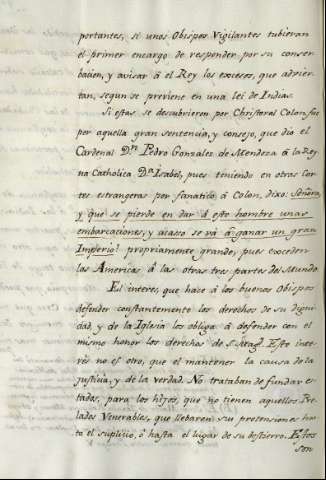 portantes, si unos Obispos Vigilantes tubieran
el primer encargo de responder por su conser
bacion, y avisar â el Rey los excesos, que advier
tan, segun se previene en una lei de Indias.
Si estas se descubrieron por Christoval Colon, fue
por aquella gran sentencia, y consejo, que dio el
Cardenal Dⁿ Pedro Gonzalez de Mendoza â la Rey
na Catholica Dª Isabel, pues teniendo en otras Cor
tes estrangeras por fanatico â Colon, dixo: Señora,
y què se pierde en dar â este hombre unas
embarcaciones, y acaso se và â ganar un gran
Imperio? propriamente grande, pues exceden
las Americas â las otras tres partes del Mundo.
El interes, que hace â los buenos Obispos
defender constantemente los derechos de su digni
dad, y de la Iglesia los obliga â defender con el
mismo honor los derechos de S. Magd. Este inte
rès no es otro, que el mantener la causa de la
justicia, y de la verdad. No trataban de fundar es
tados, para los hijos, que no tienen aquellos Pre
lados Venerables, que llebaron sus pretensiones has
ta el suplicio, ò hasta el lugar de su destierro. Estos
son